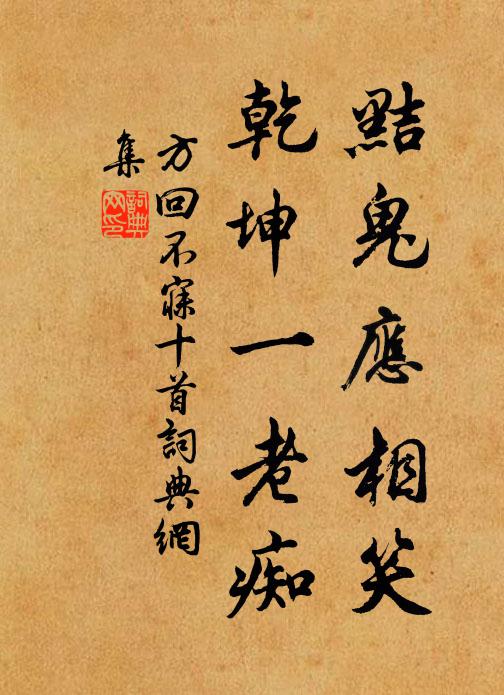 黠鬼應相笑
乾坤一老痴
方回不寐十首詞典網
集
詞典網印